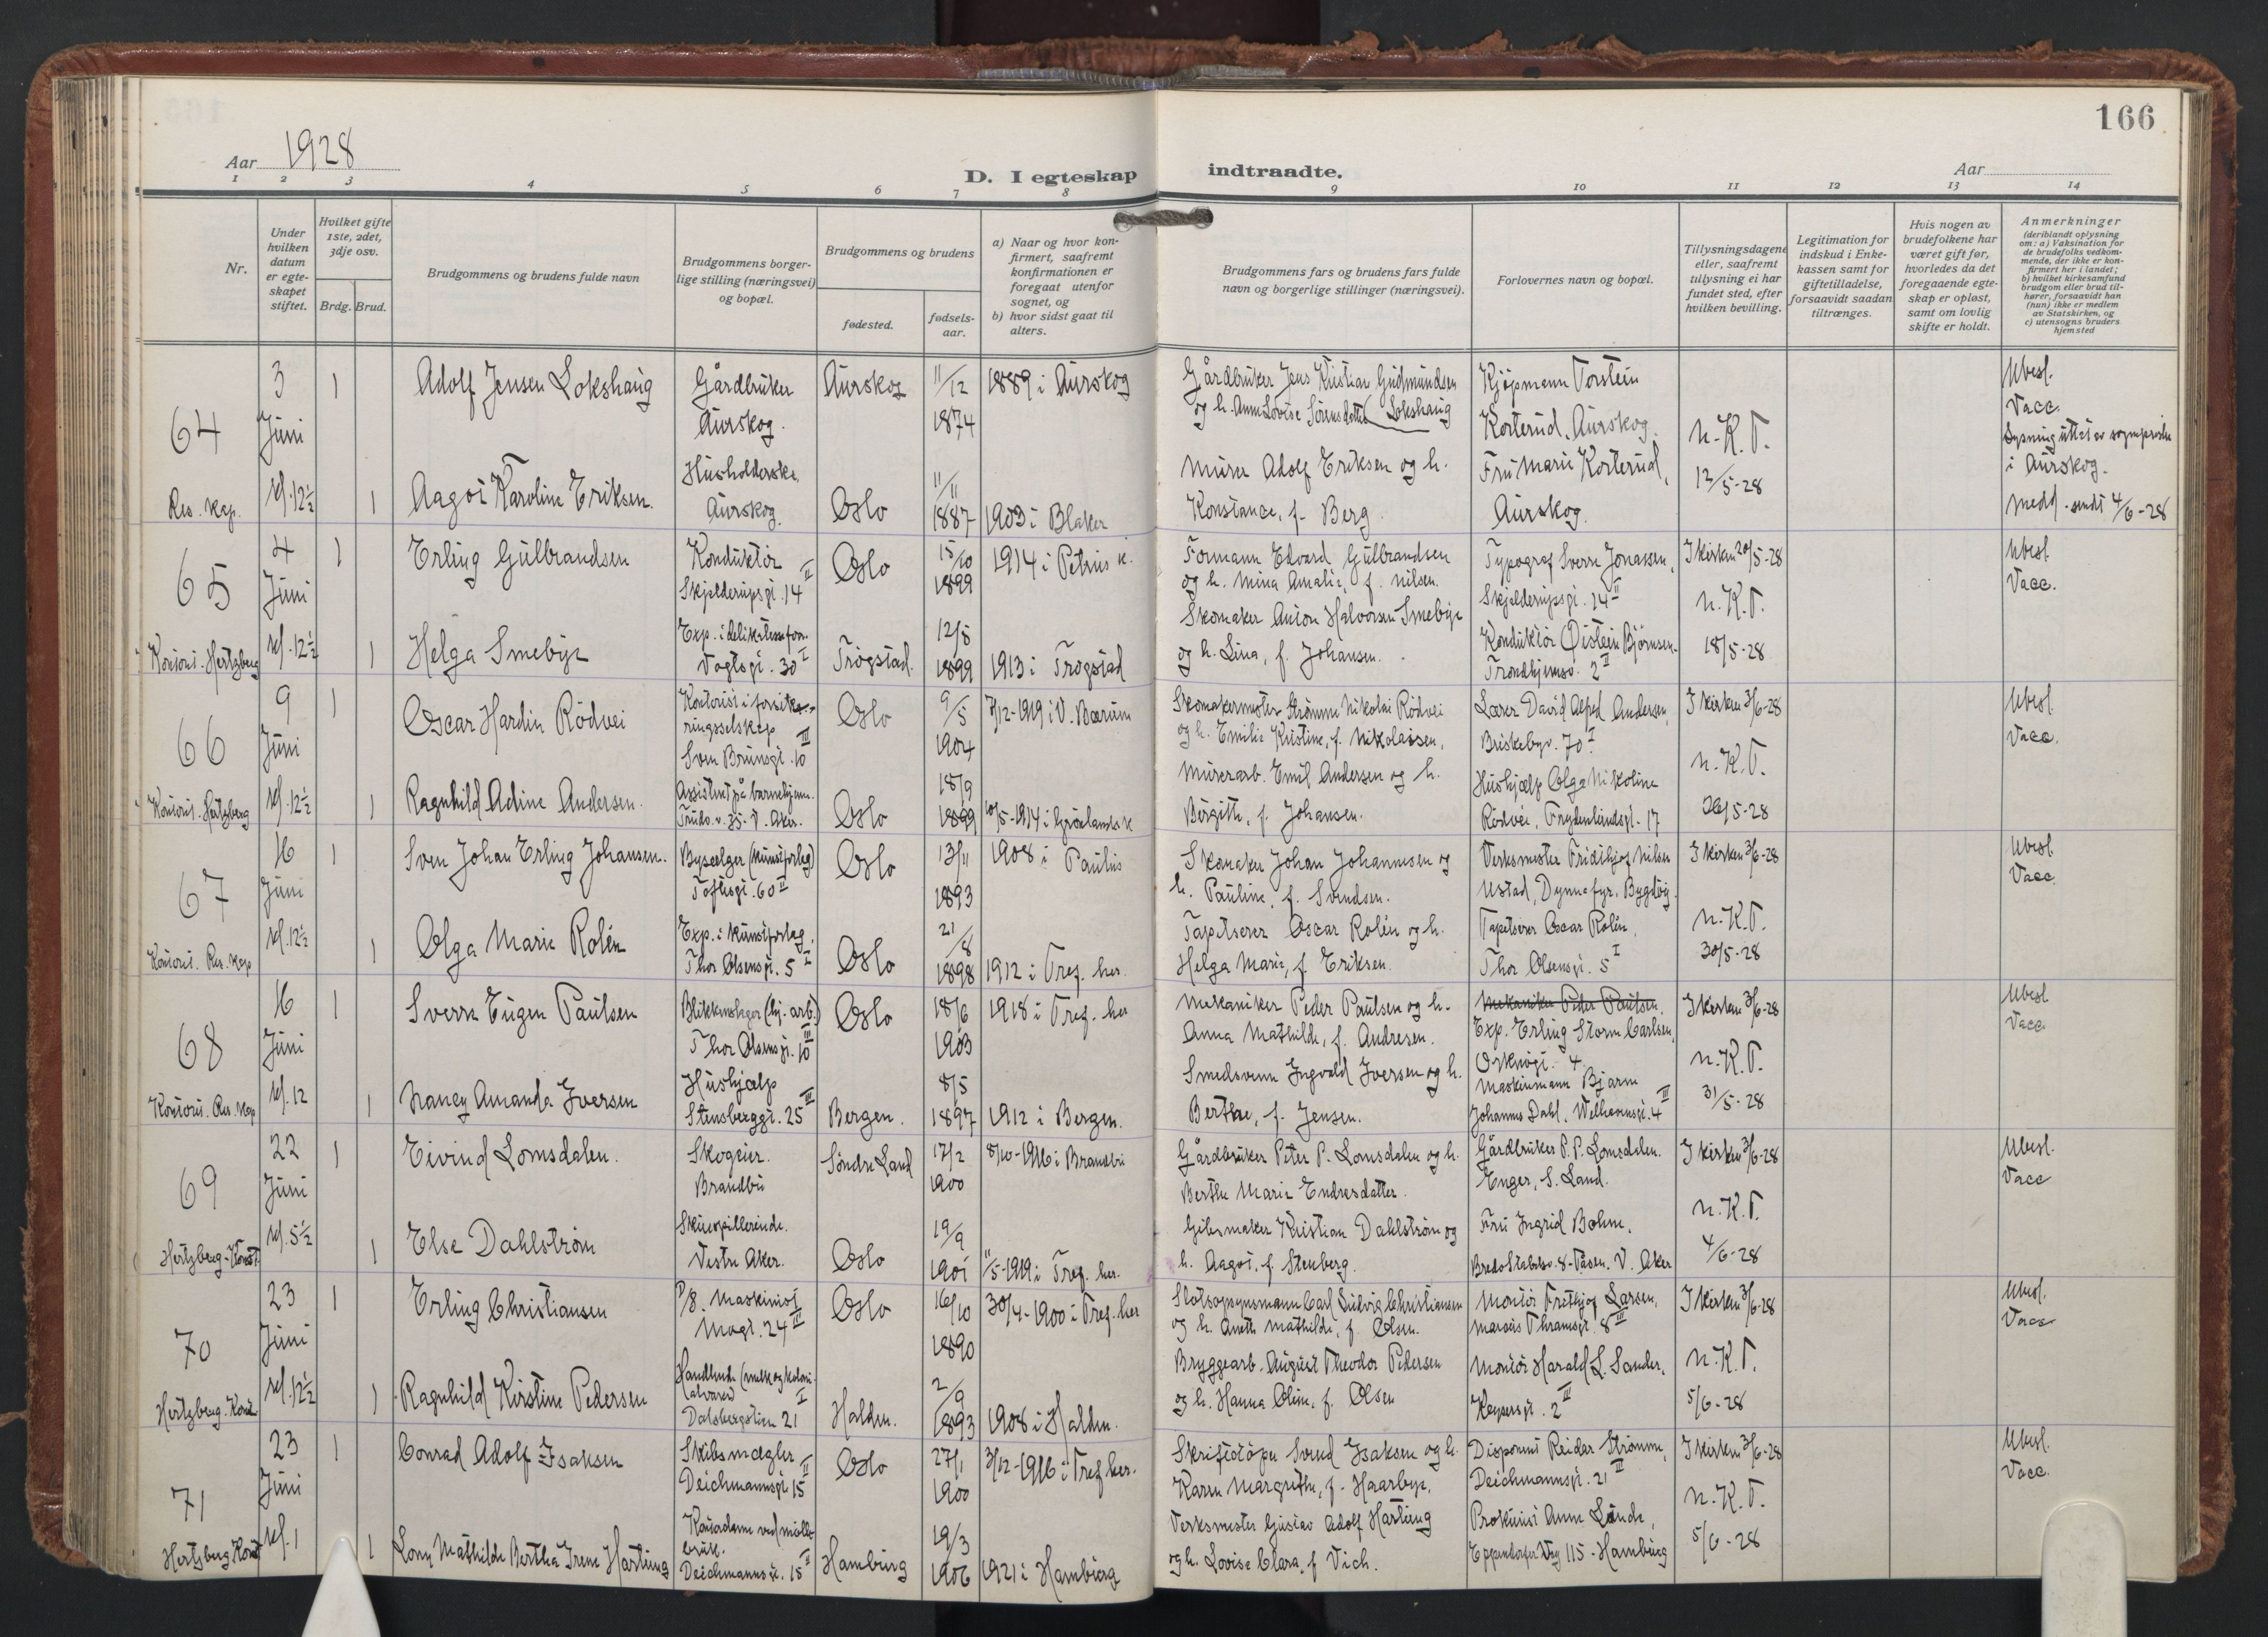 166
Aar 1928
D. I egteskap indtraadte.
Aar
1 2 3 4 5 6 7 8 9 10 11 12 13 14
Nr.
Under hvilken datum er egteskapet stiftet.
Hvilket gifte 1ste, 2det, 3dje osv.
Brdg. Brud.
Brudgommens og brudens fulde navn
Brudgommens borgerlige stilling (næringsvei) og bopæl.
Brudgommens og brudens
fødested.
fødselsaar.
a) Naar og hvor konfirmert, saafremt konfirmationen er foregaat utenfor sognet, og
b) hvor sidst gaat til alters.
Brudgommens fars og brudens fars fulde navn og borgerlige stillinger (næringsvei).
Forlovernes navn og bopæl.
Tillysningsdagene eller, saafremt tillysning ei har fundet sted, efter hvilken bevilling.
Legitimation for indskud i Enkekassen samt for giftetilladelse, forsaavidt saadan tiltrænges.
Hvis nogen av brudefolkene har været gift før, hvorledes da det foregaaende egteskap er opløst, samt om lovlig skifte er holdt.
Anmerkninger
(deriblandt oplysning om: a) Vaksination for de brudefolks vedkommende, der ikke er konfirmert her i landet; b) hvilket kirkesamfund brudgom eller brud tilhører, forsaavidt han (hun) ikke er medlem av Statskirken, og c) utensogns bruders hjemsted
64
Res. Kap.
3 Juni kl. 12½
1
Adolf Jensen Lokshaug
Gårdbruker
Aurskog.
Aurskog
11/12 1874
1889 i Aurskog
Gårdbruker Jens Kristian Gudmundsen
og h. Anne Lovise Sörensdatter (Lokshaug
Kjøpmann Torstein
Korterud, Aurskog.
N.K.T.
12/5-28
Ubesl.
Vacc.
Lysning utført av sogneprest
i Aurskog.
Medd. sendt 4/6-28
1
Aagot Karoline Eriksen.
Husholderske,
Aurskog.
Oslo
11/11 1887
1903 i Blaker
Murer Adolf Eriksen og h.
Konstance, f. Berg
Fru Marie Korterud,
Aurskog.
65
Kontorist. Hertzberg
4 Juni kl. 12½
1
Erling Gulbrandsen
Konduktør
Skjelderupsgt. 14 II
Oslo
15/10 1899
1914 i Petrus k.
Formann Edvard Gulbrandsen
og h. Mina Amalie, f. Nilsen.
Typograf Sverre Jonassen,
Skjelderupsgt. 14 II
I kirken 20/5-28
N.K.T.
18/5-28
Ubesl.
Vacc.
1
Helga Smebye
Exp. i delikatesseforr.
Vogtsgt. 30 I
Trögstad.
12/8 1899
1913 i Trögstad
Skomaker Anton Halvorsen Smebye
og h. Lina, f. Johansen.
Konduktør Öistein Björnsen.
Trondhjemsv. 2 II
66
Kontorist. Hertzberg
9 Juni kl. 12½
1
Oscar Hardin Rödvei
Kontorist i forsikringsselskap
Sven Brunsgt. 10 III
Oslo
9/5 1904
7/12-1919 i V. Bærum
Skomakermester Strömme Nikolai Rödvei
og h. Emilie Kristine, f. Nikolaisen.
Lærer David Alfred Andersen,
Briskebyv. 70 I
I kirken 3/6-28
N.K.T.
26/5-28
Ubesl.
Vacc.
1
Ragnhild Adine Andersen.
Assistent på barnehjem.
Oslo
18/9 1899
10/5-1914 i Grönlands k
Murerarb. Emil Andersen og h.
Birgitte, f. Johansen.
Hushjælp Olga Nikoline
Rödvei, Frydenlundsgt. 17
67
Kontorist. Res. Kap
16 Juni kl. 12½
1
Sven Johan Erling Johansen.
Byselger (kunstforlag)
Toftesgt. 60 II
Oslo
13/11 1893
1908 i Paulus
Skomaker Johan Johannesen og
h. Pauline, f. Svendsen.
Verksmester Fridthjof Nilsen
Ustad, Dynna fyr. Bygdöy.
I kirken 3/6-28
N.K.T.
30/5-28
Ubesl.
Vacc.
1
Olga Marie Rolén
Exp. i kunstforlag,
Thor Olsensgt. 5 I
Oslo
21/8 1898
1912 i Tref. her.
Tapetserer Oscar Rolén og h.
Helga Marie, f. Eriksen.
Tapetserer Oscar Rolén,
Thor Olsensgt. 5 I
68
Kontorist. Res. Kap
16 Juni kl. 12
1
Sverre Eugen Paulsen
Blikkenslager (hj. arb.)
Thor Olsensgt. 10 III
Oslo
18/6 1903
1918 i Tref. her
Mekaniker Peder Paulsen og h.
Anna Mathilde, f. Andresen.
Mekaniker Peder Paulsen.
Exp. Erling Storm Carlsen,
I kirken 3/6-28
N.K.T.
31/5-28
Ubesl
Vacc.
1
Nancy Amanda Iversen
Hushjælp
Stensberggt. 25 III
Bergen.
8/5 1897
1912 i Bergen.
Smedsvenn Ingvald Iversen og h.
Berthe, f. Jensen.
Maskinmann Bjarne
Johannes Dahl, Welhavensgt. 4 III
69
Hertzberg - Konst.
22 Juni kl. 5½
1
Eivind Lomsdalen.
Skogeier.
Brandbu
Söndre Land
17/2 1900
8/10-1916 i Brandbu
Gårdbruker Peter P. Lomsdalen og h.
Berthe Marie Endresdatter.
Gårdbruker P. P. Lomsdalen.
Enger, S. Land.
I kirken 3/6-28
N.K.T.
4/6-28
Ubesl.
Vacc
1
Else Dahlström
Skuespillerinde.
Vestre Aker.
Oslo
19/9 1901
11/5-1919 i Tref. her.
Gibsmaker Kristian Dahlström og
h. Aagot, f. Stenberg.
Fru Ingrid Bohm,
Bredo Stabelsv. 8 - Tåsen. V. Aker
70
Hertzberg. Konst
23 Juni kl. 12½
1
Erling Christiansen
P/8. Maskinist
Mogt. 24 III
Oslo
16/10 1890
30/4-1900 i Tref. her
Slotsopsynsmann Carl Ludvig Christiansen
og h. Anette Mathilde, f. Olsen.
Montör Frithjof Larsen,
Marcus Thranesgt. 8 III
I kirken 3/6-28
N.K.T.
5/6-28
Ubesl.
Vacc
1
Ragnhild Kirstine Pedersen
Handlende (melk og kolonialvarer)
Dalsbergstien 21 I
Halden.
2/9 1893
1908 i Halden.
Bryggearb. August Theodor Pedersen
og h. Hanna Oline, f. Olsen
Montör Harald L. Sander,
Keysersgt. 2 III
71
Hertzberg Konst
23 Juni kl. 1
1
Conrad Adolf Isaksen
Skibsmægler
Deichmannsgt. 15 II
Oslo
27/1 1900
3/12-1916 i Tref her.
Skriftstöper Svend Isaksen og h.
Karen Margrethe, f. Haarbye.
Disponent Reidar Strömme,
Deichmannsgt. 21 II
I kirken 3/6-28
N.K.T.
5/6-28
Ubesl.
Vacc.
1
Lony Mathilde Bertha Irene Hartung
Deichmannsgt. 15 II
Hamburg
19/3 1906
1921 i Hamburg
Verksmester Gustav Adolf Hartung
og h. Lovise Clara, f. Vich.
Prokurist Anne Lande,
Eppendorfer Weg 115 - Hamburg